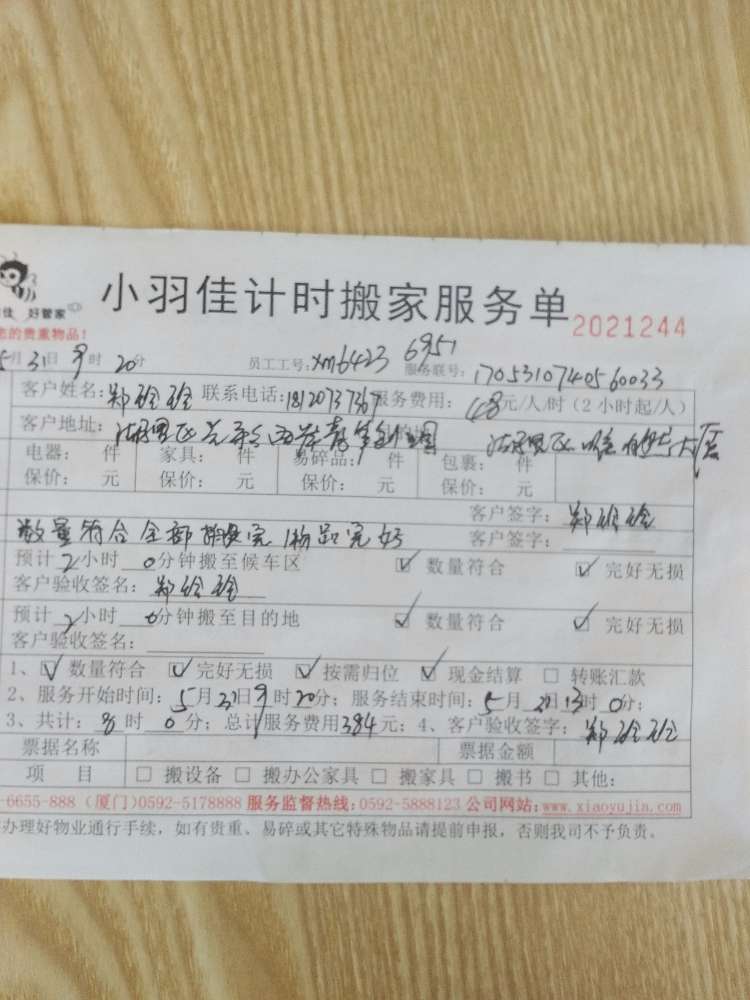 小羽佳计时搬家服务单 2021244
佳 好管家
您的贵重物品!
5月31日9时20分 员工工号:xm6423 6951 服务联号:1705310740560033
客户姓名: 郑 联系电话:18120737367 服务费用: 48元/人/时(2小时起/人)
客户地址: 湖里区
电器: 件 家具: 件 易碎品: 件 包裹: 件
保价: 元 保价: 元 保价: 元 保价: 元
客户签字: 郑
数量符合 全部搬完 物品完好 客户签字:
预计2小时0分钟搬至候车区 ☑ 数量符合 ☑ 完好无损
客户验收签名: 郑
预计2小时0分钟搬至目的地 ☑ 数量符合 ☑ 完好无损
客户验收签名:
1、☑ 数量符合 ☑ 完好无损 ☑ 按需归位 ☑ 现金结算 □ 转账汇款
2、服务开始时间:5月31日9时20分; 服务结束时间:5月31日13时0分;
3、共计:8时0分; 总计服务费用384元; 4、客户验收签字: 郑
票据名称 票据金额
项 目 □ 搬设备 □ 搬办公家具 □ 搬家具 □ 搬书 □ 其他:
-6655-888 (厦门)0592-5178888 服务监督热线:0592-5888123 公司网站:www.xiaoyujia.com
办理好物业通行手续,如有贵重、易碎或其它特殊物品请提前申报,否则我司不予负责。